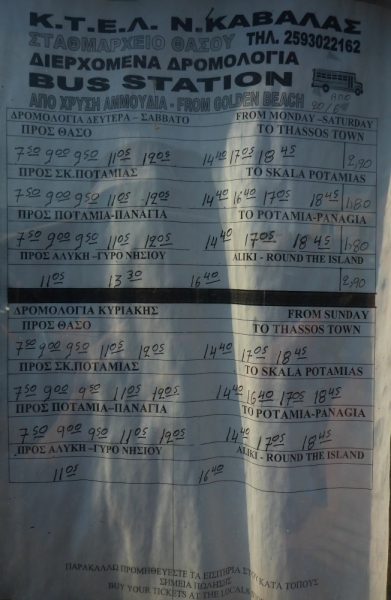 Κ.Τ.Ε.Λ. Ν.ΚΑΒΑΛΑΣ
ΣΤΑΘΜΑΡΧΕΙΟ ΘΑΣΟΥ ΤΗΛ. 2593022162
ΔΙΕΡΧΟΜΕΝΑ ΔΡΟΜΟΛΟΓΙΑ
BUS STATION
ΑΠΟ ΧΡΥΣΗ ΑΜΜΟΥΔΙΑ - FROM GOLDEN BEACH ΑΠΟ
ΔΡΟΜΟΛΟΓΙΑ ΔΕΥΤΕΡΑ – ΣΑΒΒΑΤΟ FROM MONDAY –SATURDAY
ΠΡΟΣ ΘΑΣΟ TO THASSOS TOWN
7 50 9 00 9 50 11 05 12 05 14 40 17 05 18 45 2,90
ΠΡΟΣ ΣΚ.ΠΟΤΑΜΙΑΣ TO SKALA POTAMIAS
7 50 9 00 9 50 11 05 12 05 14 40 16 40 17 05 18 45 1,80
ΠΡΟΣ ΠΟΤΑΜΙΑ-ΠΑΝΑΓΙΑ TO POTAMIA-PANAGIA
7 50 9 00 9 50 11 05 12 05 14 40 17 05 18 45 1,80
ΠΡΟΣ ΑΛΥΚΗ –ΓΥΡΟ ΝΗΣΙΟΥ ALIKI - ROUND THE ISLAND
11 05 13 30 16 40 2,90
ΔΡΟΜΟΛΟΓΙΑ ΚΥΡΙΑΚΗΣ FROM SUNDAY
ΠΡΟΣ ΘΑΣΟ TO THASSOS TOWN
7 50 9 00 9 50 11 05 12 05 14 40 17 05 18 45
ΠΡΟΣ ΣΚ.ΠΟΤΑΜΙΑΣ TO SKALA POTAMIAS
7 50 9 00 9 50 11 05 12 05 14 40 16 40 17 05 18 45
ΠΡΟΣ ΠΟΤΑΜΙΑ–ΠΑΝΑΓΙΑ TO POTAMIA-PANAGIA
7 50 9 00 9 50 11 05 12 05 14 40 17 05 18 45
ΠΡΟΣ ΑΛΥΚΗ –ΓΥΡΟ ΝΗΣΙΟΥ ALIKI - ROUND THE ISLAND
11 05 16 40
ΠΑΡΑΚΑΛΩ ΠΡΟΜΗΘΕΥΕΣΤΕ ΤΑ ΕΙΣΙΤΗΡΙΑ ΣΤΟΥΣ ΚΑΤΑ ΤΟΠΟΥΣ
ΣΗΜΕΙΑ ΠΩΛΗΣΗΣ
BUY YOUR TICKETS AT THE LOCAL